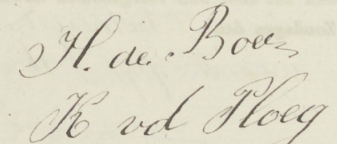 H. de. Boer
K vd Ploeg